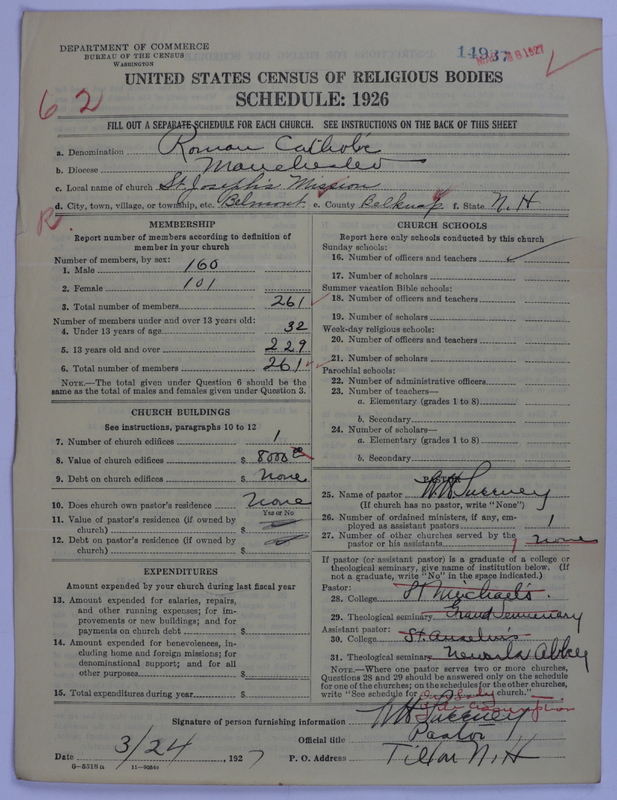 DEPARTMENT OF COMMERCE
BUREAU OF THE CENSUS
WASHINGTON
14937
28 1927
UNITED STATES CENSUS OF RELIGIOUS BODIES
SCHEDULE: 1926
62
FILL OUT A SEPARATE SCHEDULE FOR EACH CHURCH. SEE INSTRUCTIONS ON THE BACK OF THIS SHEET
a. Denomination Roman Catholic
b. Diocese Manchester
c. Local name of church St. Joseph's Mission
d. City, town, village, or township, etc. Belmont e. County Belknap f. State N. H
R
MEMBERSHIP
Report number of members according to definition of member in your church
Number of members, by sex:
1. Male 160
2. Female 101
3. Total number of members 261
Number of members under and over 13 years old:
4. Under 13 years of age 32
5. 13 years old and over 229
6. Total number of members 261
NOTE.—The total given under Question 6 should be the same as the total of males and females given under Question 3.
CHURCH BUILDINGS
See instructions, paragraphs 10 to 12
7. Number of church edifices 1
8. Value of church edifices $ 8000 00
9. Debt on church edifices $ None
10. Does church own pastor's residence None
Yes or No
11. Value of pastor's residence (if owned by church) $
12. Debt on pastor's residence (if owned by church) $
EXPENDITURES
Amount expended by your church during last fiscal year
13. Amount expended for salaries, repairs, and other running expenses; for improvements or new buildings; and for payments on church debt $
14. Amount expended for benevolences, including home and foreign missions; for denominational support; and for all other purposes $
15. Total expenditures during year $
CHURCH SCHOOLS
Report here only schools conducted by this church
Sunday schools:
16. Number of officers and teachers
17. Number of scholars
Summer vacation Bible schools:
18. Number of officers and teachers
19. Number of scholars
Week-day religious schools:
20. Number of officers and teachers
21. Number of scholars
Parochial schools:
22. Number of administrative officers
23. Number of teachers—
a. Elementary (grades 1 to 8)
b. Secondary
24. Number of scholars—
a. Elementary (grades 1 to 8)
b. Secondary
PASTOR
25. Name of pastor W H Sweeney
(If church has no pastor, write "None")
26. Number of ordained ministers, if any, employed as assistant pastors 1
27. Number of other churches served by the pastor or his assistants 1 none
If pastor (or assistant pastor) is a graduate of a college or theological seminary, give name of institution below. (If not a graduate, write "No" in the space indicated.)
Pastor:
28. College St Michael's
29. Theological seminary Grand Seminary
Assistant pastor:
30. College St. Anselms
31. Theological seminary Abbey
NOTE.—Where one pastor serves two or more churches, Questions 28 and 29 should be answered only on the schedule for one of the churches; on the schedules for the other churches, write "See schedule for church."
Signature of person furnishing information W H Sweeney
Official title Pastor
Date 3/24, 1927 P. O. Address Tilton N. H
11—